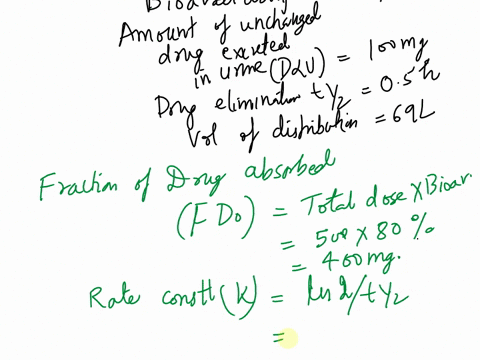 Amount of unchanged
drug excreted
in urine (DαU) = 100mg
Drug elimination t y2 = 0.5 h
Vol of distribution = 69L
Fraction of Drug absorbed
(F D0) = Total dose X Bioav.
= 500 X 80 %
= 400 mg.
Rate constt (K) = ln 2/t y2
=